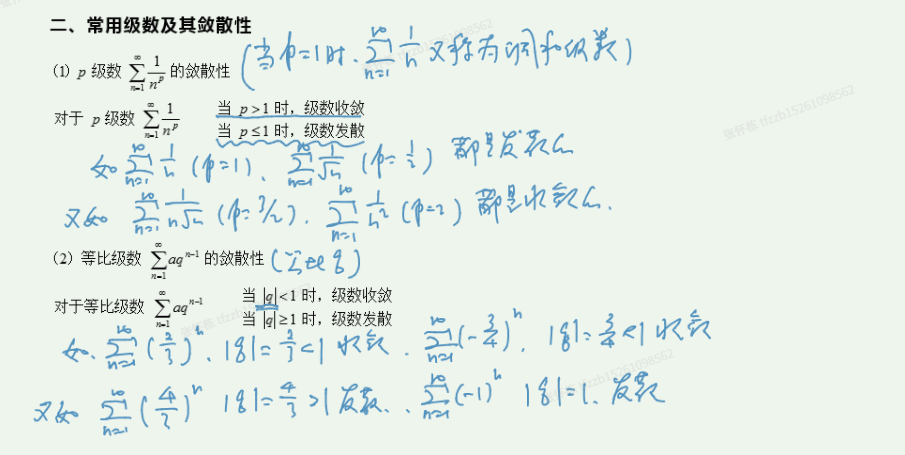 二、常用级数及其敛散性
(当p=1时, ∑_{n=1}^{∞} 1/n 又称为调和级数)
(1) p 级数 ∑_{n=1}^{∞} 1/n^p 的敛散性
对于 p 级数 ∑_{n=1}^{∞} 1/n^p 当 p>1 时，级数收敛
当 p≤1 时，级数发散
如 ∑_{n=1}^{∞} 1/n (p=1)、∑_{n=1}^{∞} 1/√n (p=1/2) 都是发散的
又如 ∑_{n=1}^{∞} 1/(n√n) (p=3/2)、∑_{n=1}^{∞} 1/n² (p=2) 都是收敛的.
(2) 等比级数 ∑_{n=1}^{∞} aq^{n-1} 的敛散性 (公比q)
对于等比级数 ∑_{n=1}^{∞} aq^{n-1} 当 |q|<1 时，级数收敛
当 |q|≥1 时，级数发散
如、∑_{n=1}^{∞} (2/3)^n、|q|=2/3<1 收敛、∑_{n=1}^{∞} (-3/4)^n、|q|=3/4<1 收敛
又如 ∑_{n=1}^{∞} (4/3)^n |q|=4/3>1 发散、∑_{n=1}^{∞} (-1)^n |q|=1、发散